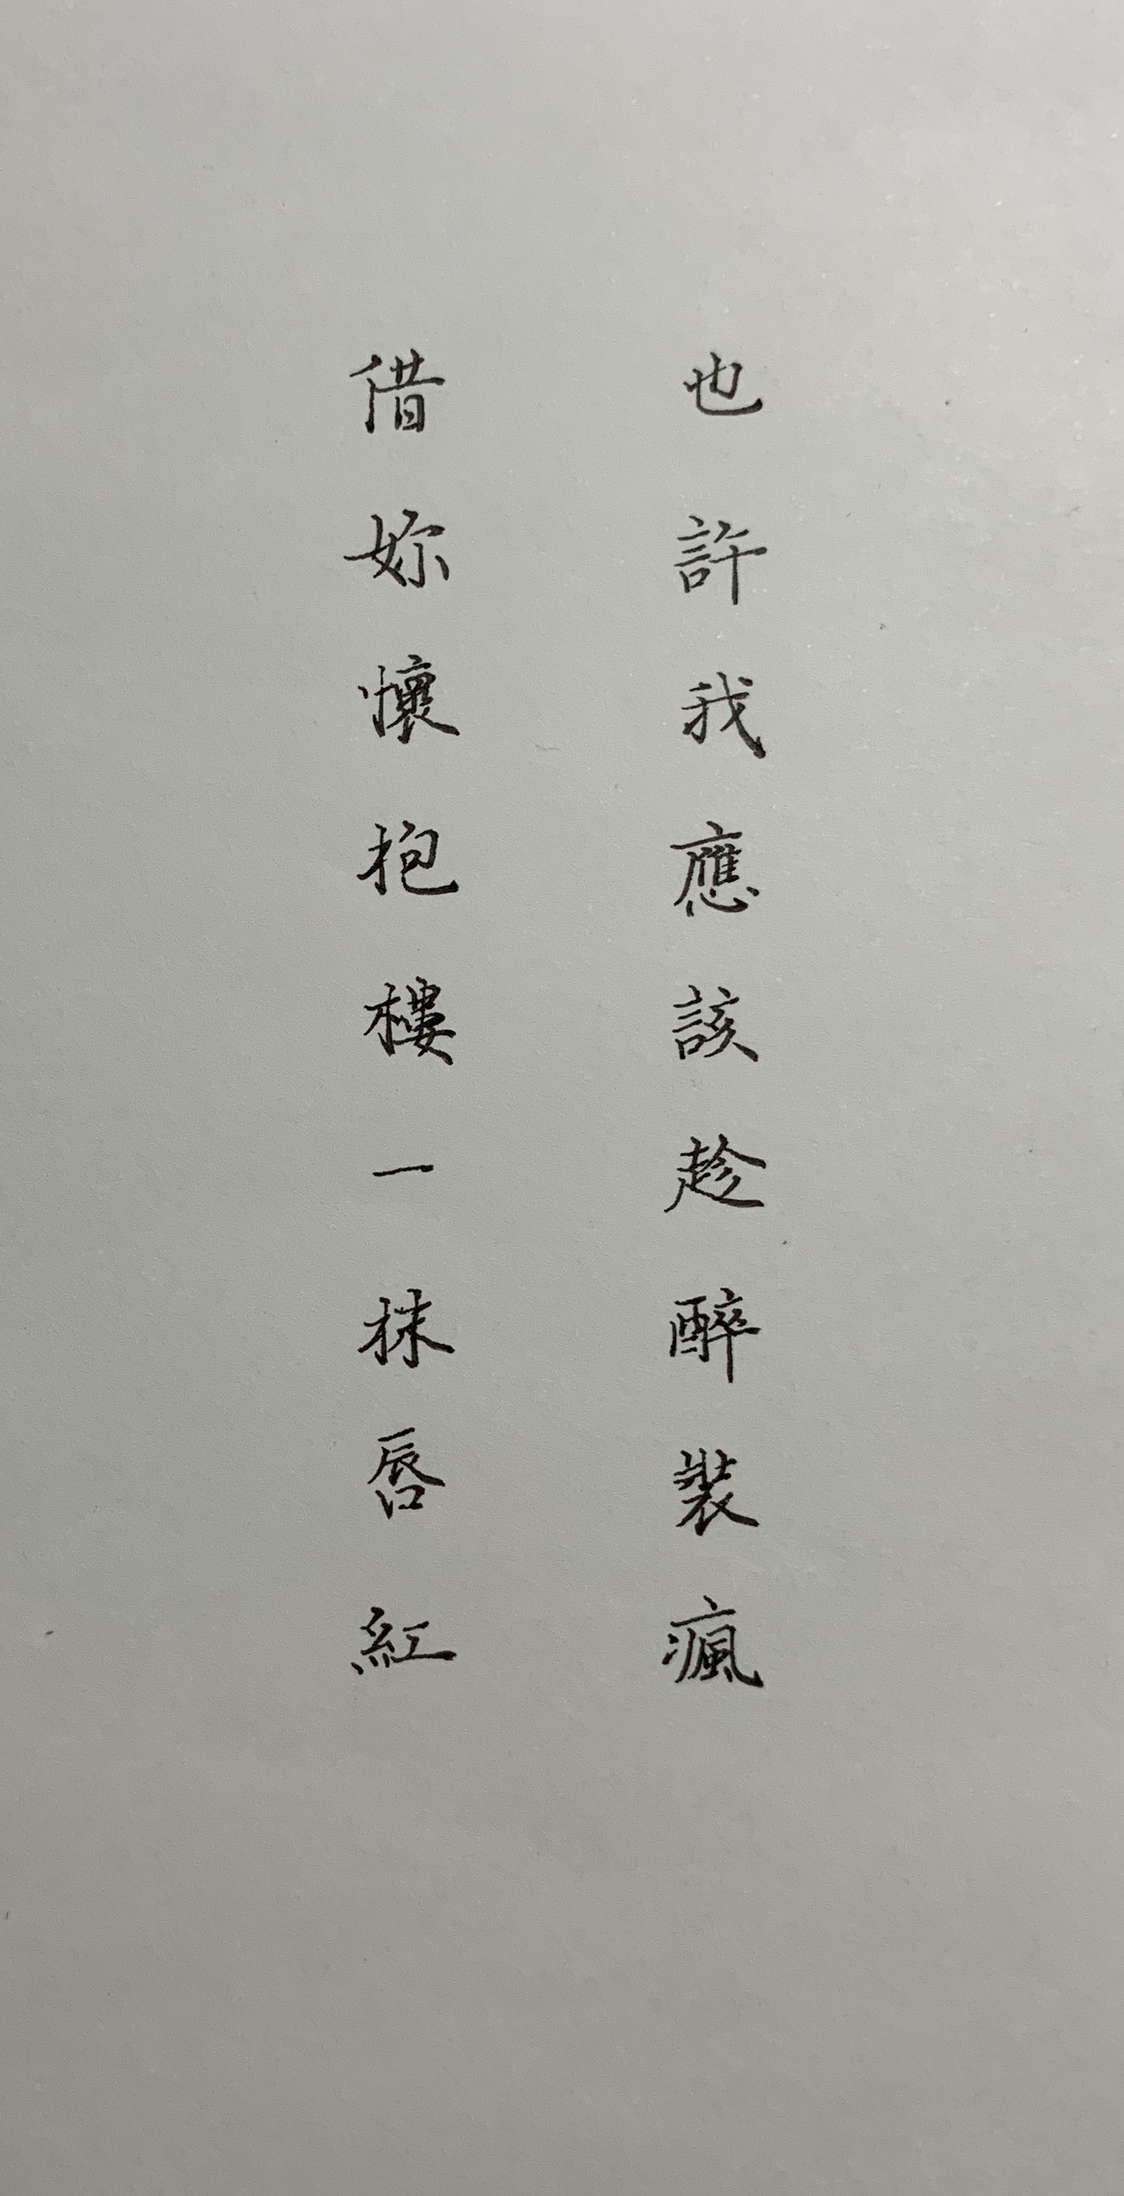 也許我應該趁醉裝瘋
借妳懷抱樓一抹唇紅